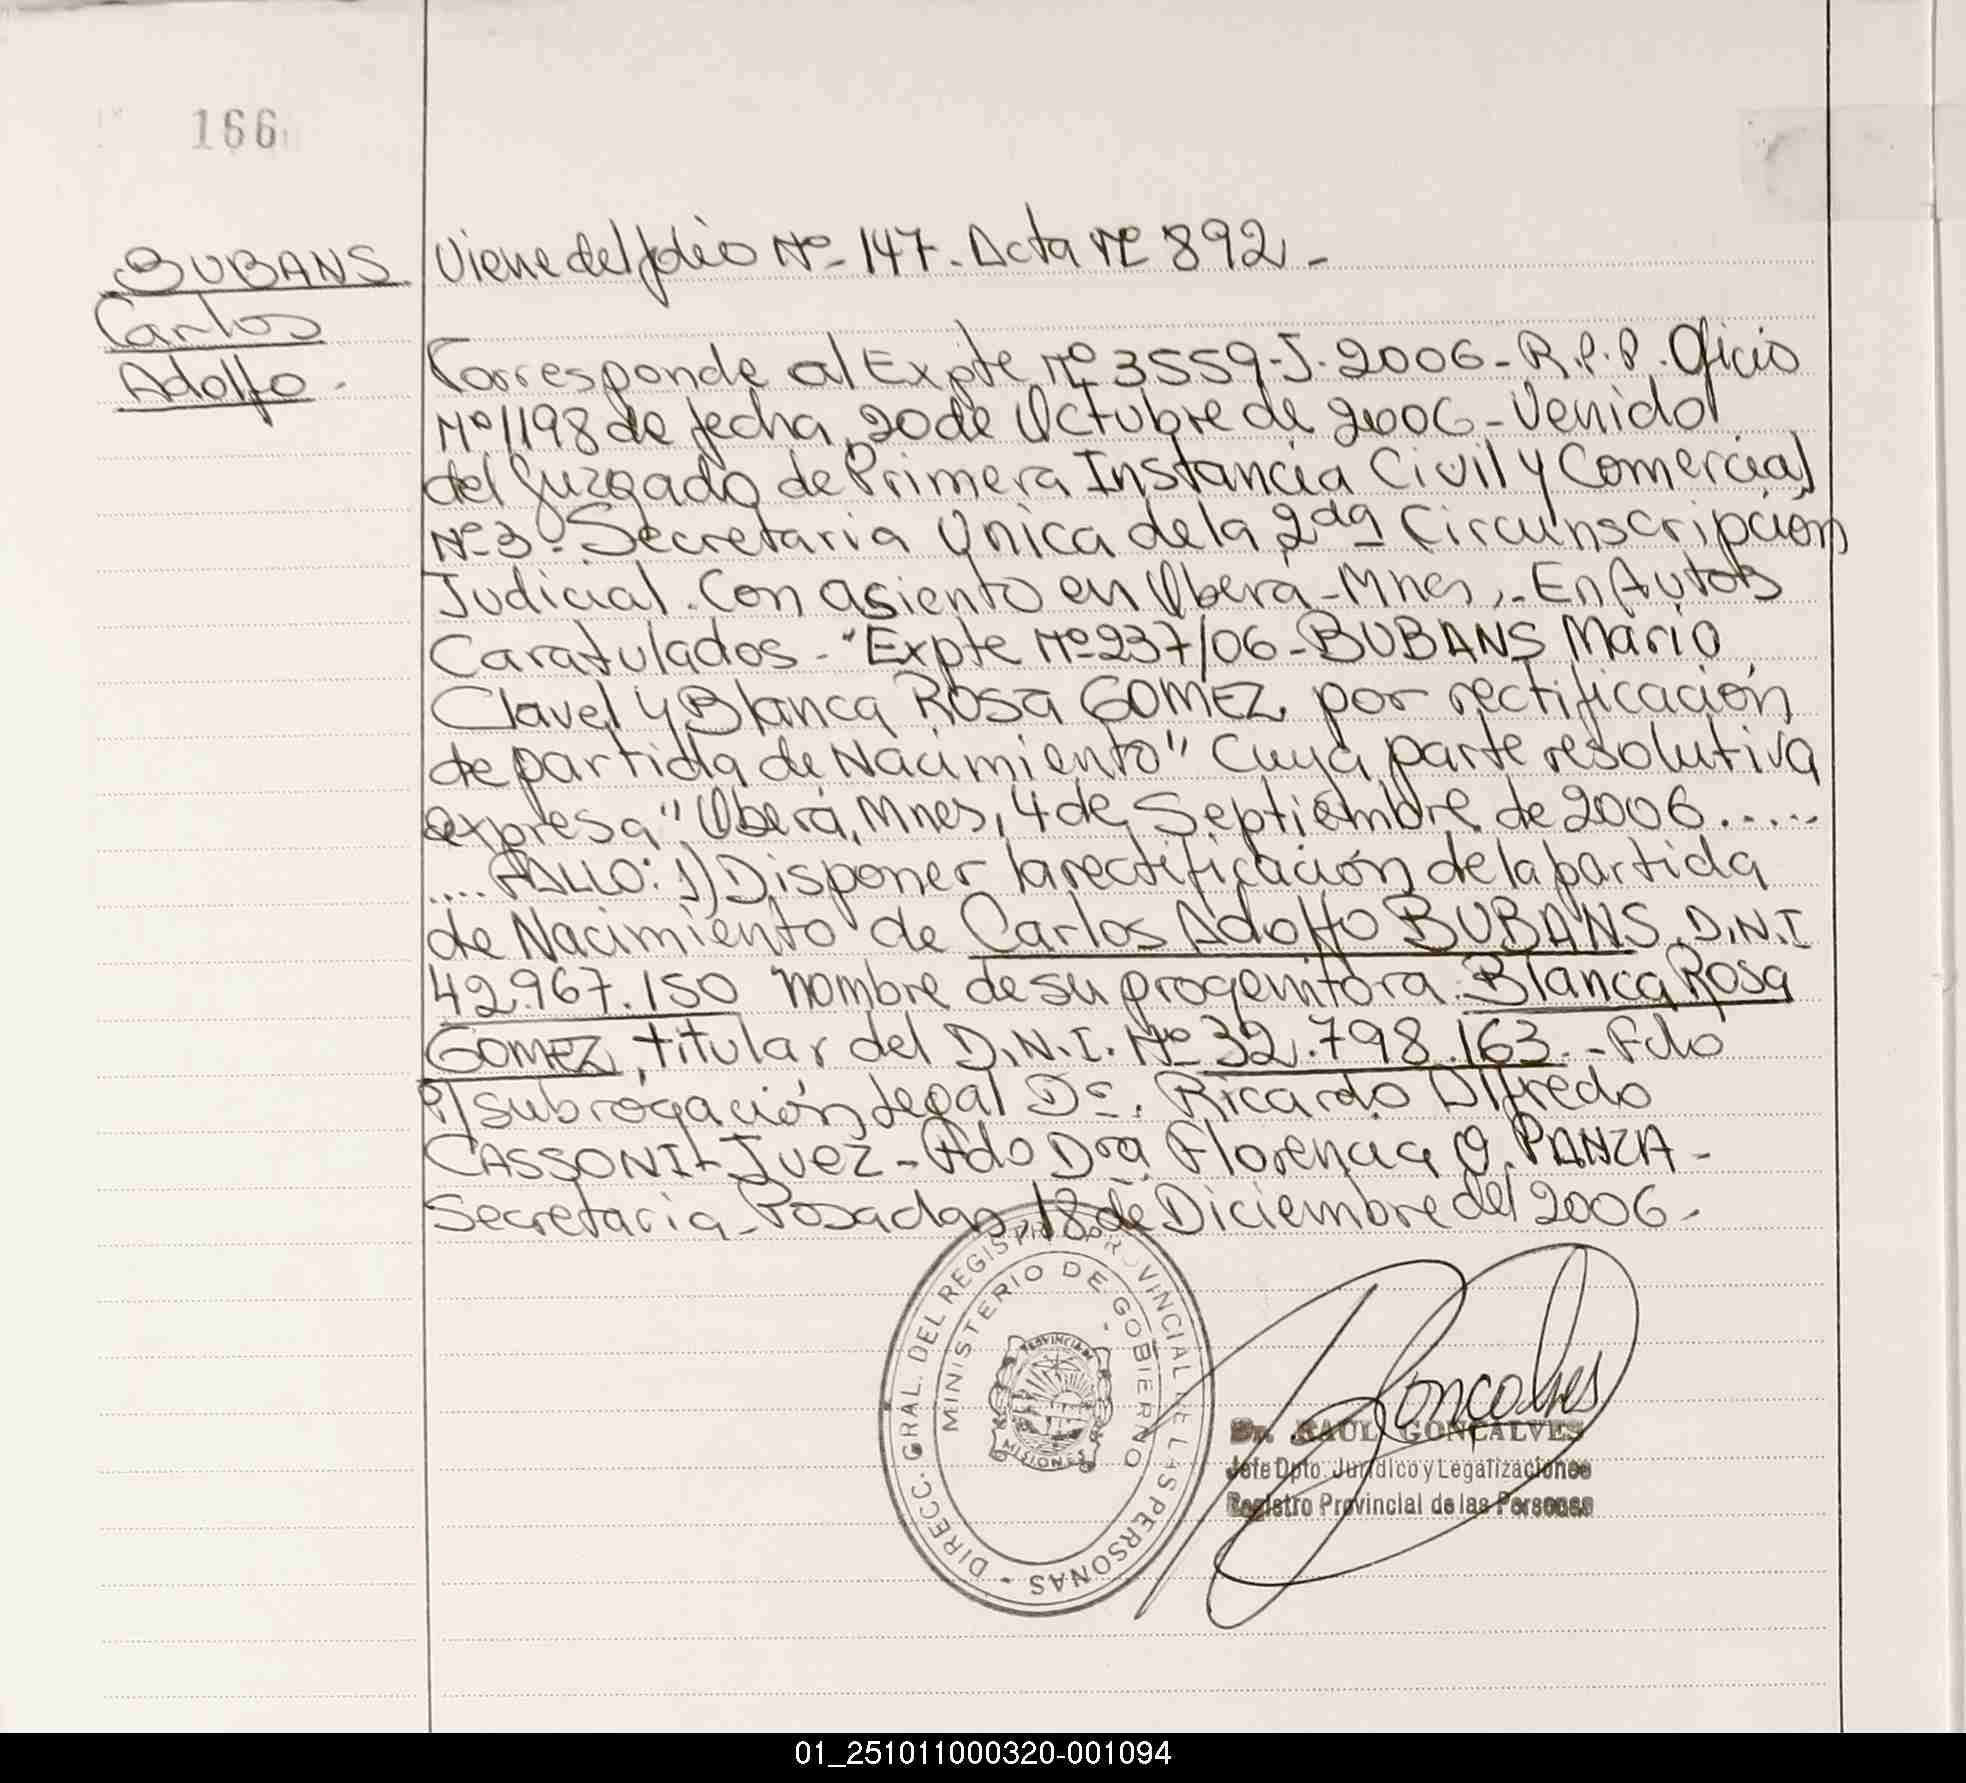 166
BUBANS
Carlos
Adolfo.
Viene del folio Nº 147. Acta Nº 892.-
Corresponde al Expte Nº 3559-J-2006-R.P.P. Oficio
Nº 1198 de fecha 20 de Octubre de 2006-Venido
del Juzgado de Primera Instancia Civil y Comercial
Nº 3. Secretaria Unica de la 2da Circunscripción
Judicial. Con asiento en Obera-Mnes,.- En Autos
Caratulados-"Expte Nº 237/06-BUBANS Mario
Clavel y Blanca Rosa GOMEZ por rectificación
de partida de Nacimiento" Cuya parte resolutiva
expresa "Oberá, Mnes, 4 de Septiembre de 2006.....
....FALLO: 1) Disponer la rectificación de la partida
de Nacimiento de Carlos Adolfo BUBANS. D.N.I
42.967.150 nombre de su progenitora. Blanca Rosa
GOMEZ, titular del D.N.I. Nº 32.798.163.-Fdo
P/subrogación legal Dr. Ricardo Alfredo
CASSONI-Juez-Fdo Dra Florencia O. PANZA-
Secretaria-Posadas, 18 de Diciembre del 2006-
DIRECC. GRAL. DEL REGISTRO PROVINCIAL DE LAS PERSONAS -
MINISTERIO DE GOBIERNO
PROVINCIA DE
MISIONES
Goncalves
Dr. RAUL GONÇALVES
Jefe Dpto. Jurídico y Legalizaciones
Registro Provincial de las Personas
01_251011000320-001094